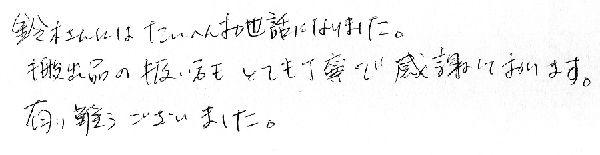 鈴木さんにはたいへんお世話になりました。
梱出品の扱い方もとても丁寧で感謝しております。
有り難うございました。